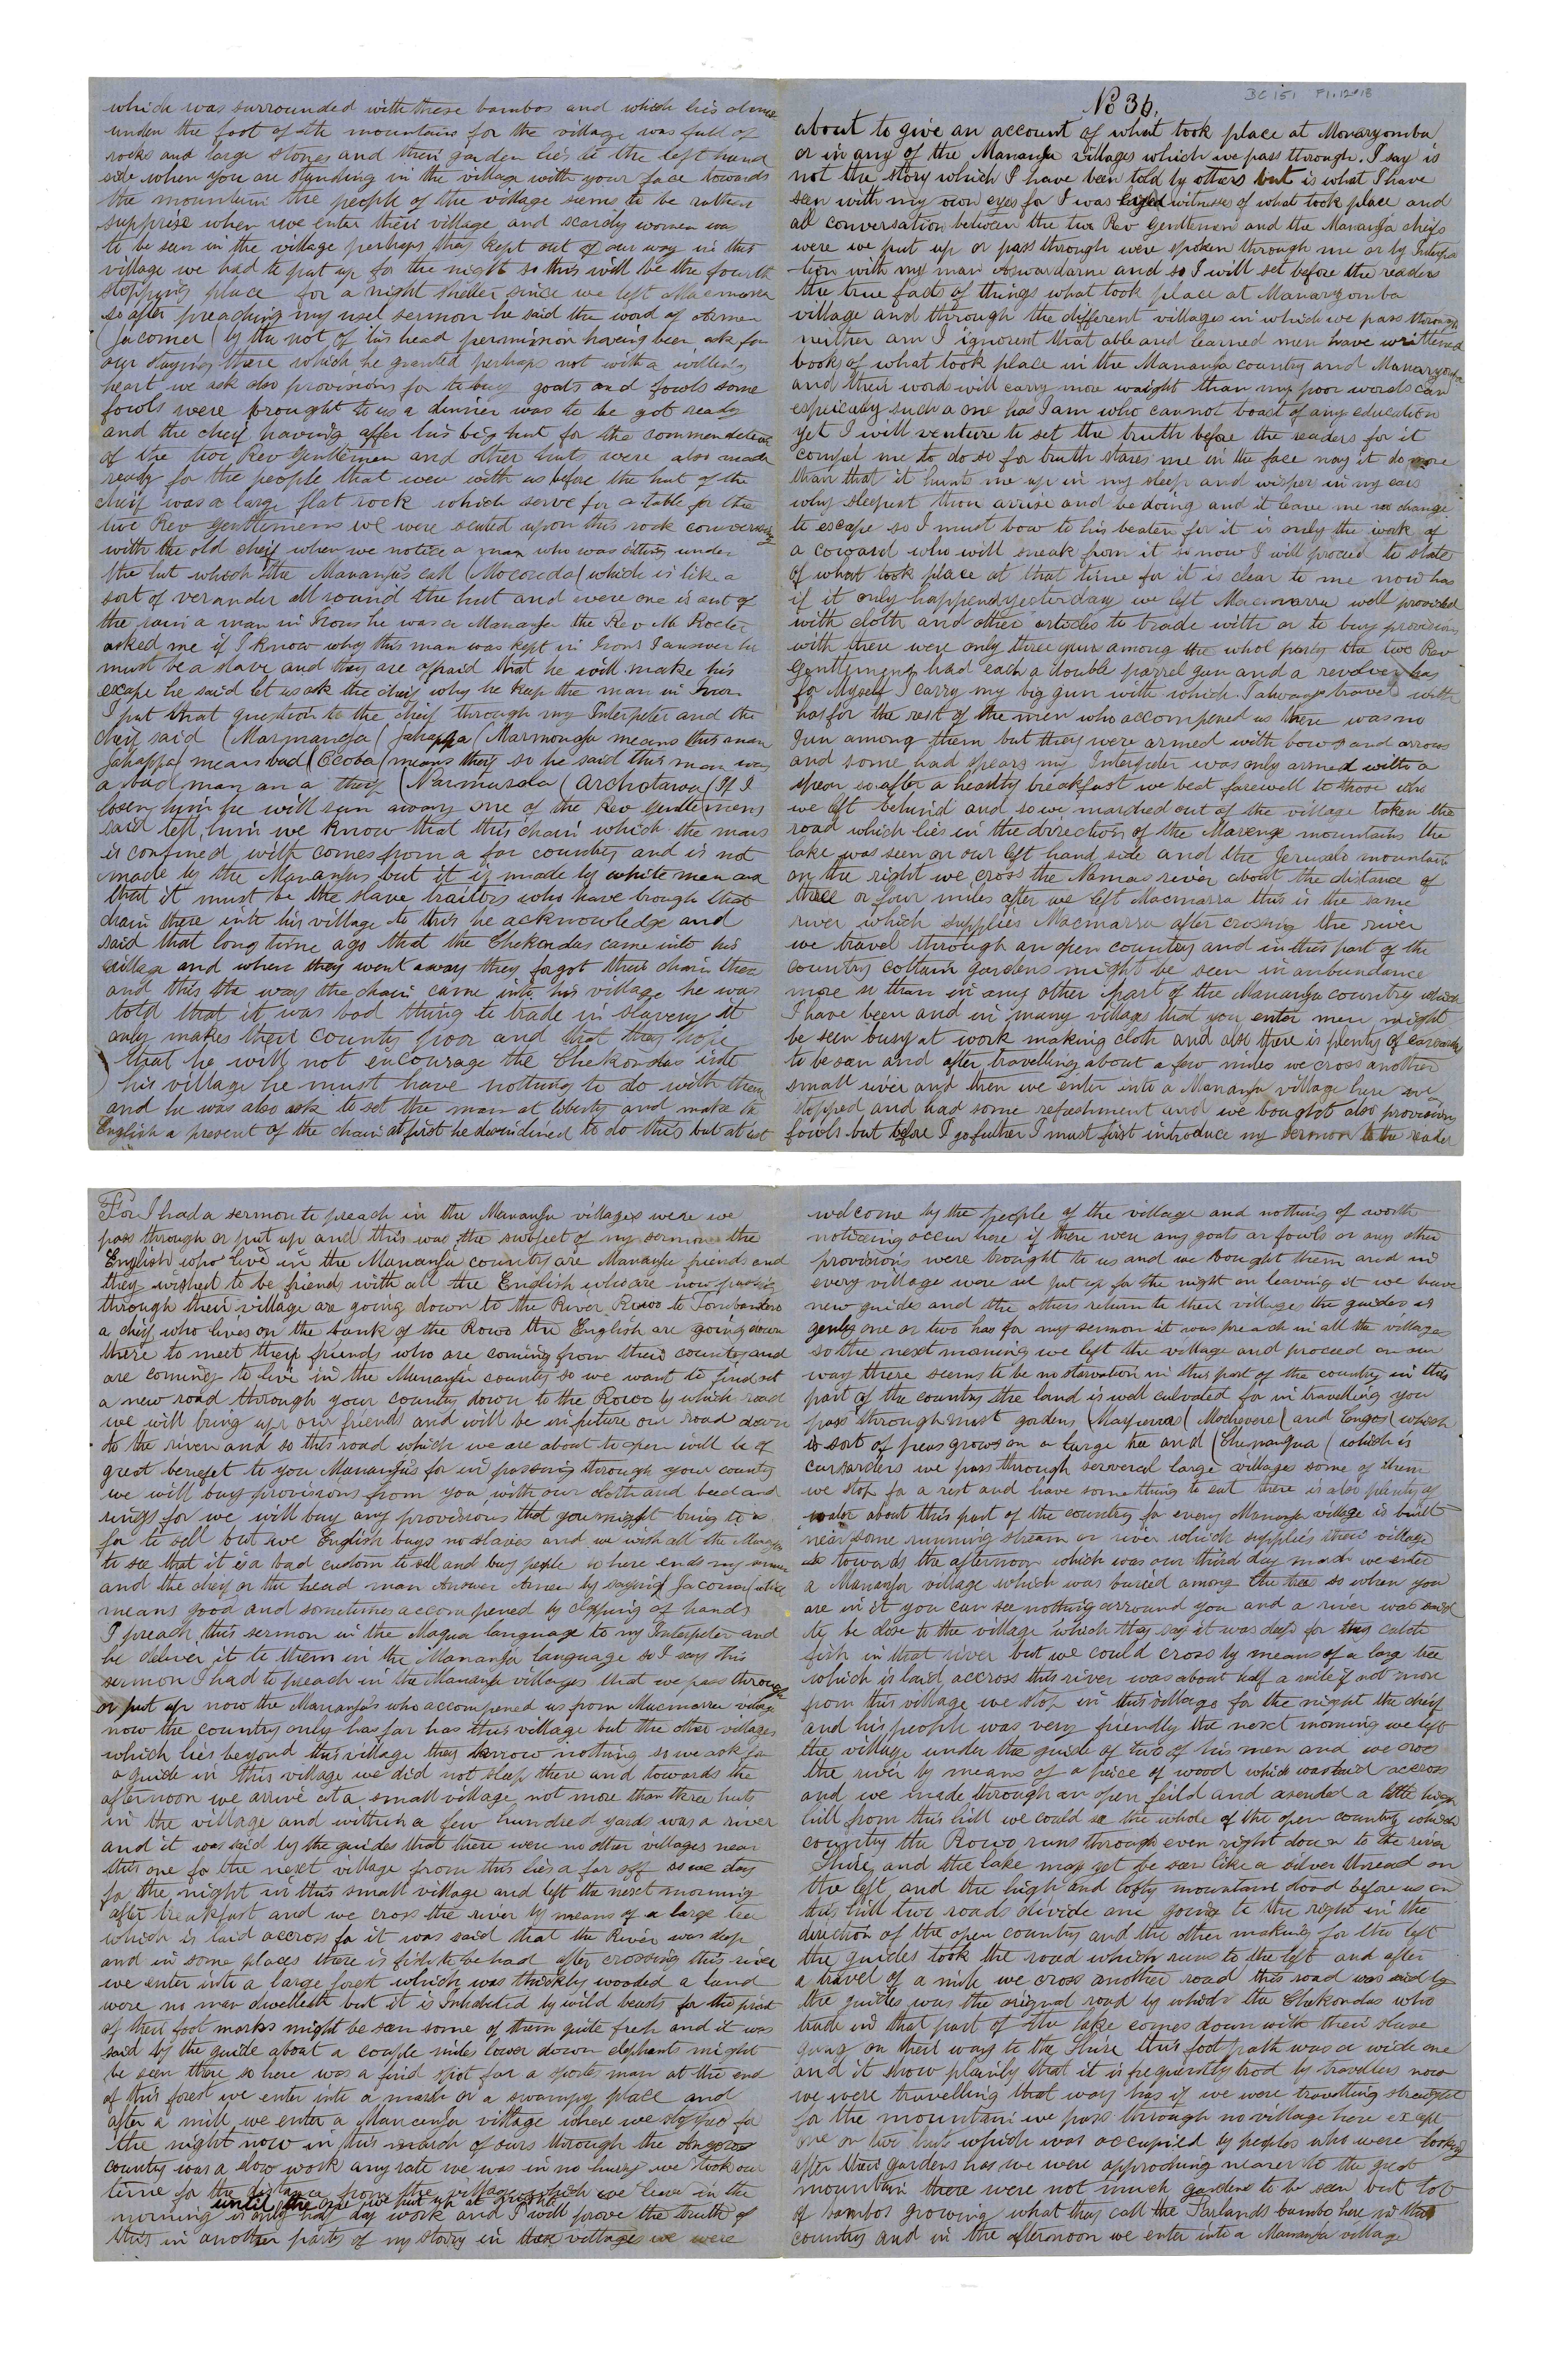 BC 151 F1.12+13
No 36.
about to give an account of what took place at Manaryomba
or in any of the Mananja villages which we pass through. I say is
not the story which I have been told by others but is what I have
seen with my own eyes for I was eyed witness of what took place and
all conversation between the two Rev Gentlemen and the Mananja cheifs
were we put up or pass through were spoken through me or by Interpe
tion with my man Aswardarne and so I will set before the readers
the true facts of things what took place at Manaryomba
village and through the different villages in which we pass through
neither am I ignorent that able and learned men have writtened
books of what took place in the Mananja country and Manaryomba
and their words will carry more waight than my poor words can
espicialy such a one has I am who cannot boast of any education
yet I will venture to set the truth before the readers for it
compel me to do so for truth stares me in the face nay it do more
than that it hunts me up in my sleep and wisper in my ears
why sleepest thou arrise and be doing and it leave me no change
to escape so I must bow to his beaten for it is only the work of
a coward who will sneak from it so now I will proceed to state
of what took place at that time for it is clear to me now has
if it only happend yesterday we left Macmarra well provided
with cloth and other articles to trade with or to buy provisions
with there were only three guns among the whol party the two Rev
Gentlemens had each a double parrel gun and a revolver has
for Myself I carry my big gun with which I always travel with
has for the rest of the men who accompened us there was no
Gun among them but they were armed with bows and arrows
and some had spears my Interpeter was only armed with a
spear so after a healthy breakfast we beat farewell to those who
we left behind and so we marched out of the village taken the
road which lies in the direction of the Marenge mountains the
lake was seen on our left hand side and the Jerusalo mountain
on the right we cross the Namas river about the distance of
three or four miles after we left Macmarra this is the same
river which supplies Macmarra after crossing the river
we travel through an open country and in this part of the
country cottain gardens might be seen in anbundance
more so than in any other part of the Mananja country which
I have been and in many villages that you enter men might
be seen busy at work making cloth and also there is plenty of
to be seen and after travelling about a few miles we cross another
small river and then we enter into a Mananja village here we
stopped and had some refreshment and we bought also provisions
fowls but before I go futher I must first introduce my sermon to the reader
For I had a sermon to preach in the Mananja villages were we
pass through or put up and this was the subject of my sermon the
English who live in the Mananja country are Mananja friends and
they wished to be friends with all the English who are now passing
through their village are going down to the River Rovoo to Tombondera
a cheif who lives on the bank of the Rovo the English are going down
there to meet their friends who are coming from their country and
are coming to live in the Mananja country so we want to find out
a new road through your country down to the Rovoo by which road
we will bring up our friends and will be in future our road down
to the river and so this road which we are about to open will be of
great benefet to you Mananja's for in passing through your country
we will buy provisions from you with our cloth and beed and
rings for we will buy any provisions that you might bring to us
for to sell but we English buys no slaves and we wish all the Mananja
to see that it is a bad custom to sell and buy people so here ends my sermon
and the cheif or the head man Answer Amen by saying (Jacoma) which
means good and sometimes accompened by clapping of hands
I preach this sermon in the Magua language to my Interpeter and
he deliver it to them in the Mananja language so I say this
sermon I had to preach in the Mananja villages that we pass through
or put up now the Mananja's who accompened us from Macmarra village
now the country only has far has this village but the other villages
which lies beyond this village they know nothing so we ask for
a guide in this village we did not sleep there and towards the
afternoon we arrive at a small village not more than three huts
in the village and within a few hundred yards was a river
and it was said by the guides that there were no other villages near
this one for the next village from this lies a far off so we stay
for the night in this small village and left the next morning
after breakfast and we cross the river by means of a large tree
which is laid accross for it was said that the River was deep
and in some places there is fish to be had after crossing this river
we enter into a large forest which was thickly wooded a land
were no man dwelleth but it is Inhabited by wild beasts for the print
of their foot marks might be seen some of them quite fresh and it was
said by the guide about a couple miles lower down elephants might
be seen there so here was a find spot for a sports man at the end
of this forest we enter into a marsh or a swampy place and
after a mile we enter a Mananja village where we stopped for
the night now in this march of ours through the Angoro
country was a slow work any rate we was in no hurry we took our
time for the distance from the village which we leave in the
until the one we put up at
morning is only half day work and I will prove the truth of
this in another parts of my storry in these villages we were
welcome by the people of the village and nothing of worth
noticeing occur here if there were any goats or fowls or any other
provisions were brought to us and we bought them and in
every village were we put up for the night on leaving it we have
new guides and the others return to their villages the guides is
genly one or two has for my sermon it was preach in all the villages
so the next morning we left the village and proceed on our
way there seems to be no starvation in this part of the country in this
part of the country the land is well culvated for in travelling you
pass through most gardens (Mapierra) (Mocheverel) and Engos (which
is sort of peas grows on a large tree and (Chenangua) which is
carsarders we pass through serveral large villages some of them
we stop for a rest and have something to eat there is also plenty of
water about this part of the country for every Mananja village is built
near some running stream or river which supplies their village
so towards the afternoon which was our third day march we enter
a Mananja village which was buried among the trees so when you
are in it you can see nothing arround you and a river was said
to be close to the village which they say it was deep for they catch
fish in that river but we could cross by means of a large tree
which is laid accross this river was about half a mile if not more
from this village we stop in this village for the night the cheif
and his people was very friendly the next morning we left
the village under the guide of two of his men and we cross
the river by means of a peice of wood which was laid accross
and we made through an open feild and asended a little high
hill from this hill we could see the whole of the open country which
country the Rovo runs through even right down to the river
Shire and the lake may yet be seen like a silver thread on
the left and the high and lofty mountains stood before us on
this hill two roads divide one going to the right in the
direction of the open country and the other making for the left
the guides took the road which runs to the left and after
a travel of a mile we cross another road this road was said by
the guides was the orignal road by which the Chekondas who
trade in that part of the lake comes down with their slave
gang on their way to the Shire this foot path was a wide one
and it show plainly that it is frequently trod by travellers now
we were travelling that way has if we were travelling streaight
for the mountain we pass through no village here except
one or two huts which was occupied by peoples who were looking
after their gardens has we were approching nearer to the great
mountain there were not much gardens to be seen but lot
of bambos growing what they call the Sarlands bambo here in this
country and in the afternoon we enter into a Mananja village
which was surrounded with these bambos and which lies almost
under the foot of the mountains for the village was full of
rocks and large stones and their garden lies to the left hand
side when you are standing in the village with your face towards
the mountain the people of the village seems to be rather
supprise when we enter their village and scardly women was
to be seen in the village perhaps they kept out of our way in this
village we had to put up for the night so this will be the fourth
stopping place for a night shelter since we left Macmarra
so after preaching my usel sermon he said the word of Armen
(Jacomer) by the not of his head permission having been ask for
our staying there which he granted perhaps not with a willing
heart we ask also provisions for to buy goats and fowls some
fowls were brought to us a dinner was to be got ready
and the cheif having offer his big hut for the commendation
of the two Rev Gentlemen and other huts were also made
ready for the people that were with us before the hut of the
cheif was a large flat rock which serve for a table for the
two Rev gentlemens we were seated upon this rock conversing
with the old cheif when we notice a man who was sitting under
the hut which the Mananja's call (Moconda) which is like a
sort of verander all round the hut and were one is out of
the rain a man in Irons he was a Mananja the Rev Mr Procter
asked me if I know why this man was kept in Irons I answer he
must be a slave and they are afraid that he will make his
excape he said let us ask the cheif why he keep the man in Irons
I put that question to the cheif through my Interpeter and the
cheif said (Marmanga) Jahappa (Marmonga means this man
Jahappa) means bad (Ecoba) means theif so he said this man was
a bad man an a theif (Narmasola (Archotarva) If I
losen him he will run away one of the Rev Gentlemens
said tell him we know that this chain which the man
is confined with comes from a far country and is not
made by the Mananjas but it is made by white men and
that it must be the slave traitors who have brough that
chain there into his village to this he acknowledge and
said that long time ago that the Chekondas came into his
village and when they went away they forgot their chain there
and this the way the chain came into his village he was
told that it was bad thing to trade in slavery it
only makes their country poor and that they hope
that he will not encourage the Chekondas into
his village he must have nothing to do with them
and he was also ask to set the man at liberty and make the
English a present of the chain at first he dicindined to do this but at last